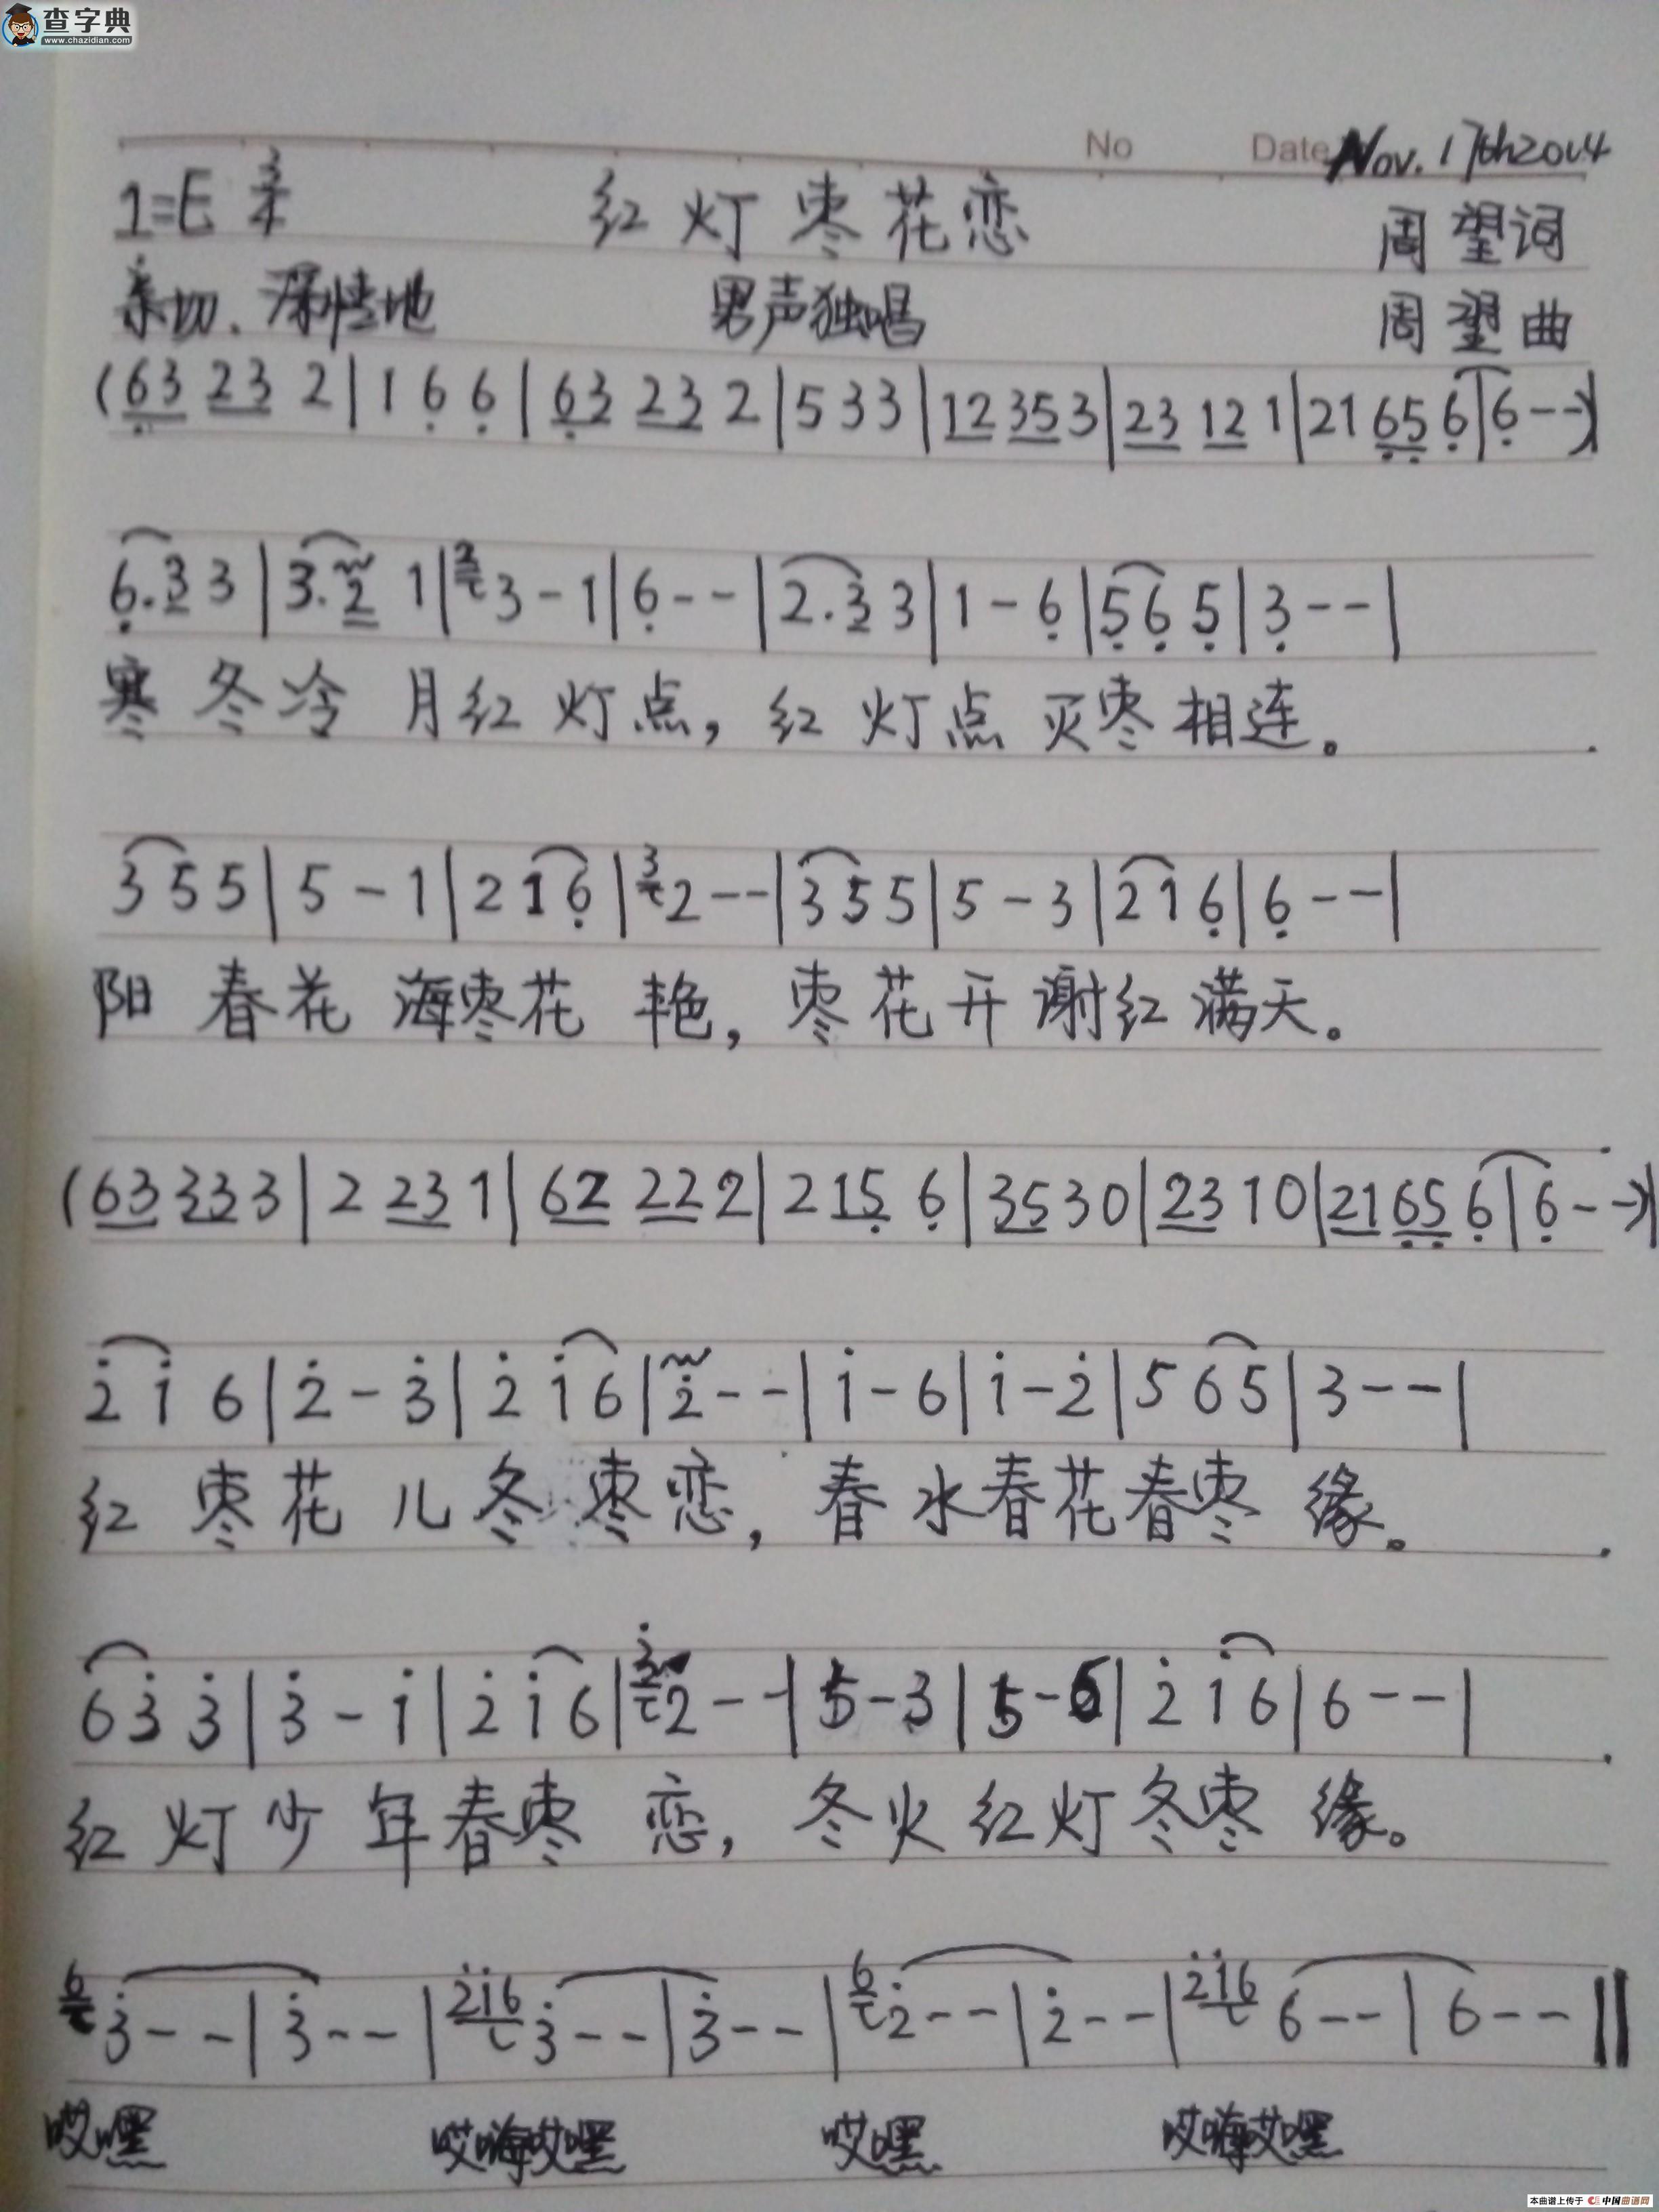 查字典
www.chazidian.com
No Date Nov. 17th 2014
1=E 3/4 红灯枣花恋 周望词
亲切、深情地 男声独唱 周望曲
(6̣3 23 2 | 1 6̣ 6̣ | 6̣3 23 2 | 5 3 3 | 12 35 3 | 23 12 1 | 21 6̣5̣ 6̣ | 6̣ - - )|
6̣. 3 3 | 3. 2 1 | 2 3 - 1 | 6̣ - - | 2. 3 3 | 1 - 6̣ | 5̣ 6̣ 5̣ | 3̣ - - |
寒冬冷月红灯点,红灯点灭枣相连。
3 5 5 | 5 - 1 | 2 1 6̣ | 3 2 - - | 3 5 5 | 5 - 3 | 2 1 6̣ | 6̣ - - |
阳春花海枣花艳,枣花开谢红满天。
(63 33 3 | 2 23 1 | 62 22 2 | 2 15̣ 6̣ | 35 3 0 | 23 1 0 | 21 6̣5̣ 6̣ | 6̣ - - )|
2̇ 1̇ 6 | 2̇ - 3̇ | 2̇ 1̇ 6 | 2̇ - - | 1̇ - 6 | 1̇ - 2̇ | 5 6 5 | 3 - - |
红枣花儿冬枣恋,春水春花春枣缘。
6 3̇ 3̇ | 3̇ - 1̇ | 2̇ 1̇ 6 | 3̇ 2 - - | 5 - 3 | 5 - 6 | 2̇ 1̇ 6 | 6 - - |
红灯少年春枣恋,冬火红灯冬枣缘。
6 3̇ - - | 3̇ - - | 2̇1̇6 3̇ - - | 3̇ - - | 6 2̇ - - | 2̇ - - | 2̇1̇6 6 - - | 6 - - ‖
哎嘿 哎嗨哎嘿 哎嘿 哎嗨哎嘿
本曲谱上传于 中国曲谱网